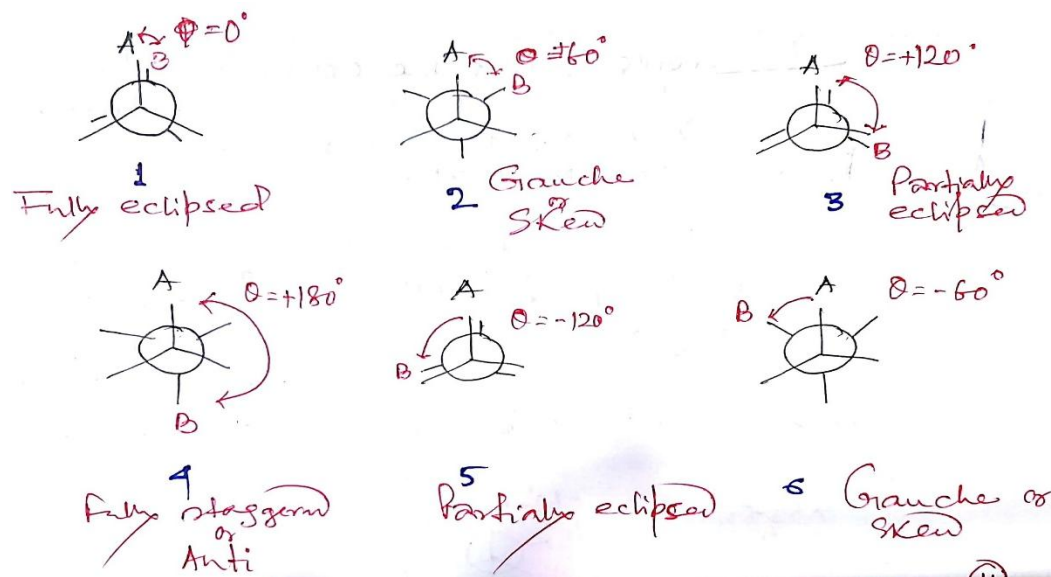 A Φ=0°
B
1
Fully eclipsed
A θ=+60°
B
2 Gauche
or
Skew
A θ=+120°
B
3 Partially
eclipsed
A θ=+180°
B
4
Fully staggered
or
Anti
A θ=-120°
B
5
Partially eclipsed
A θ=-60°
B
6 Gauche or
Skew